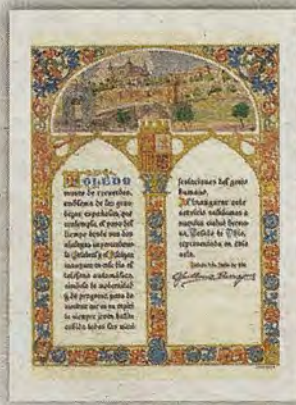 TOLEDO
monte de recuerdos,
emblema de las gran-
dezas españolas, que
contempla el paso del
tiempo desde sus dos
atalayas imperecederas
la Catedral y el Alcázar
inaugura en este día el
teléfono automático,
símbolo de modernidad
y de progreso, para de-
mostrar que en su espíri-
tu siempre joven hallan
cabida todas las mani
festaciones del genio
humano.
Al inaugurar este
servicio saludamos a
nuestra ciudad herma-
na, Toledo de Ohio,
representada en este
acto.
Toledo